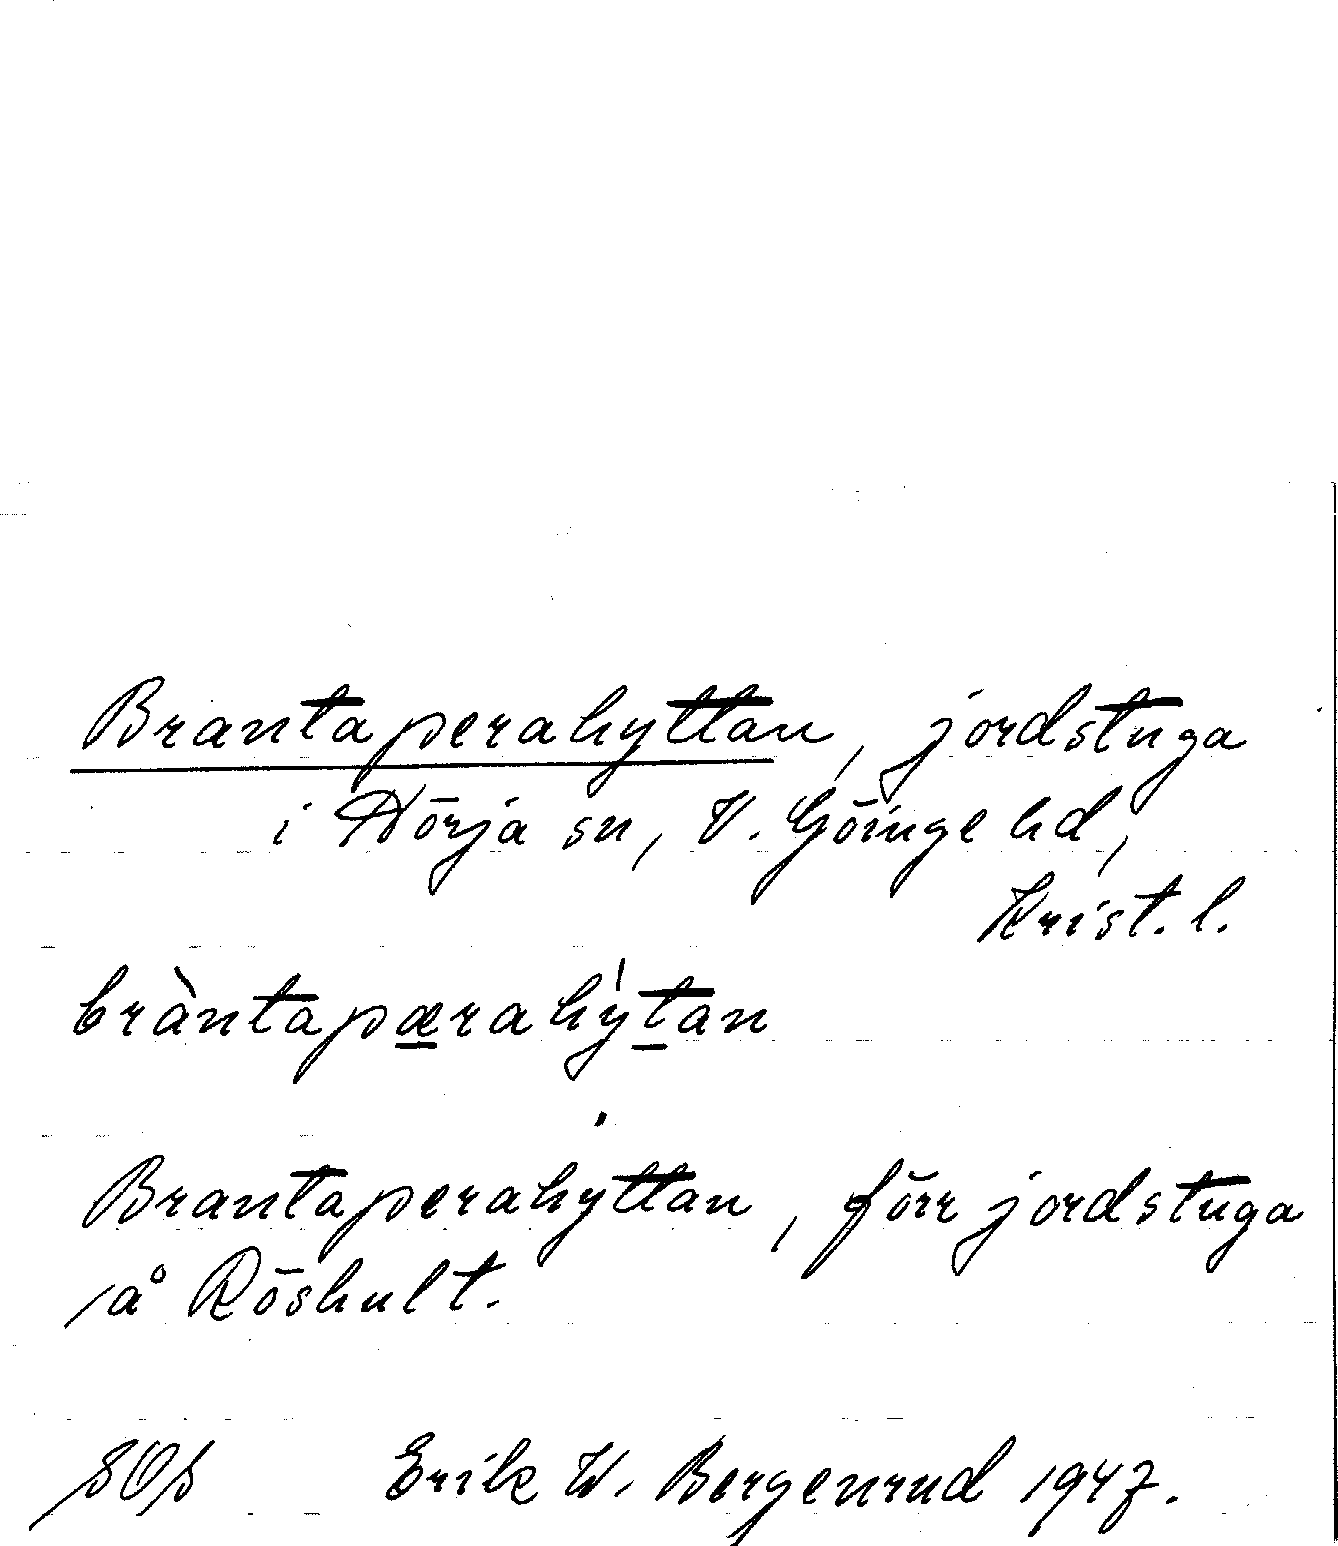 Brantaperahyttan, jordstuga
i Hörja sn, V. Göinge hd,
Krist. l.
bràntapærahýtan
Brantaperahyttan, förr jordstuga
å Röshult.
SOS Erik W. Bergenrud 1947.